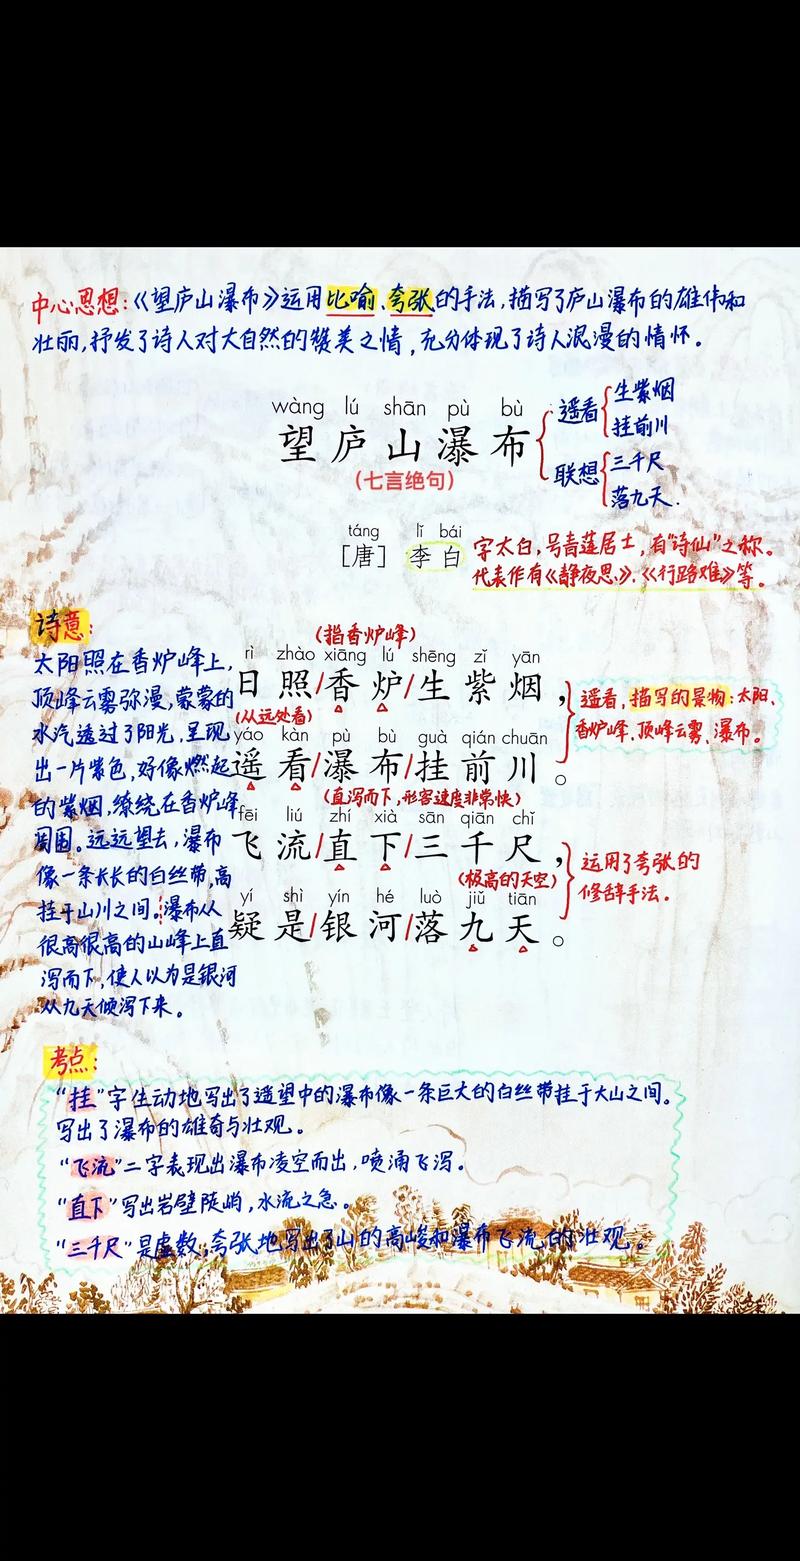 中心思想:《望庐山瀑布》运用比喻、夸张的手法,描写了庐山瀑布的雄伟和
壮丽,抒发了诗人对大自然的赞美之情,充分体现了诗人浪漫的情怀。
wàng lú shān pù bù
望庐山瀑布
(七言绝句)
遥看
生紫烟
挂前川
联想
三千尺
落九天.
táng lǐ bái
[唐] 李白
字太白,号青莲居士,有“诗仙”之称。
代表作有《静夜思》、《行路难》等。
诗意:
太阳照在香炉峰上,
顶峰云雾弥漫,蒙蒙的
水汽透过了阳光,呈现
出一片紫色,好像燃起
的紫烟,缭绕在香炉峰
周围。远远望去,瀑布
像一条长长的白丝带,高
挂于山川之间。瀑布从
很高很高的山峰上直
泻而下,使人以为是银河
从九天倾泻下来。
(指香炉峰)
rì zhào xiāng lú shēng zǐ yān
日照/香炉/生紫烟,
(从远处看)
yáo kàn pù bù guà qián chuān
遥看/瀑布/挂前川。
(直泻而下,形容速度非常快)
fēi liú zhí xià sān qiān chǐ
飞流/直下/三千尺,
(极高的天空)
yí shì yín hé luò jiǔ tiān
疑是/银河/落九天。
遥看,描写的景物:太阳、
香炉峰、顶峰云雾、瀑布。
运用了夸张的
修辞手法。
考点:
“挂”字生动地写出了遥望中的瀑布像一条巨大的白丝带挂于大山之间。
写出了瀑布的雄奇与壮观。
“飞流”二字表现出瀑布凌空而出,喷涌飞泻。
“直下”写出岩壁陡峭,水流之急。
“三千尺”是虚数,夸张地写出了山的高峻和瀑布飞流的壮观。